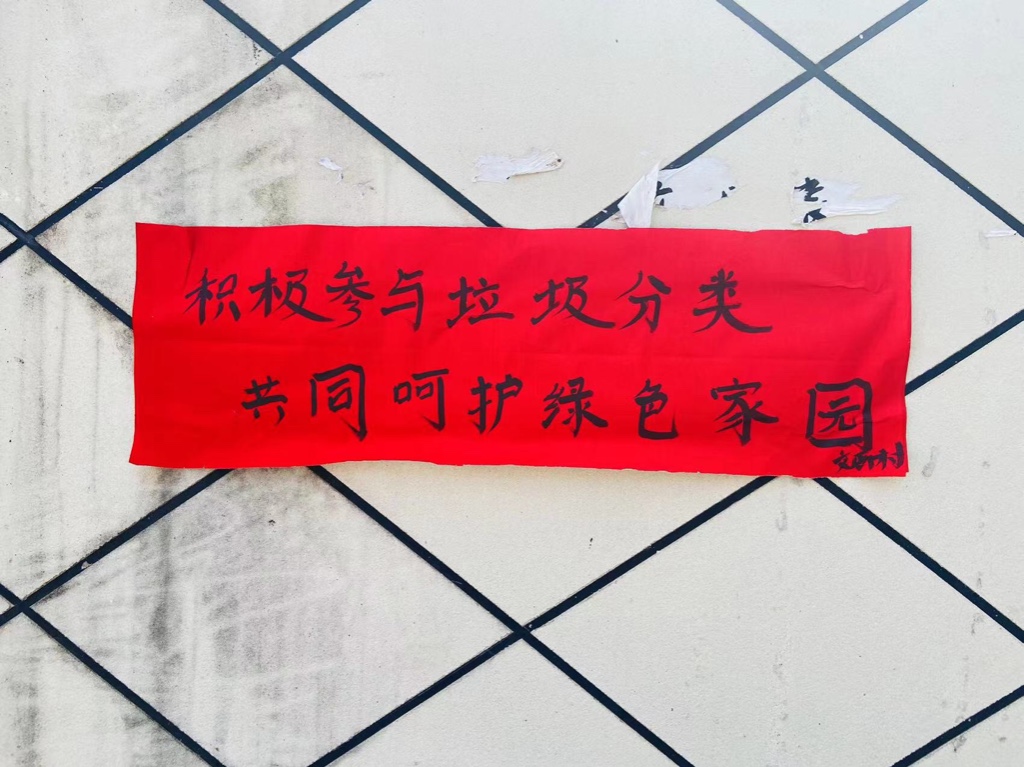 积极参与垃圾分类
共同呵护绿色家园